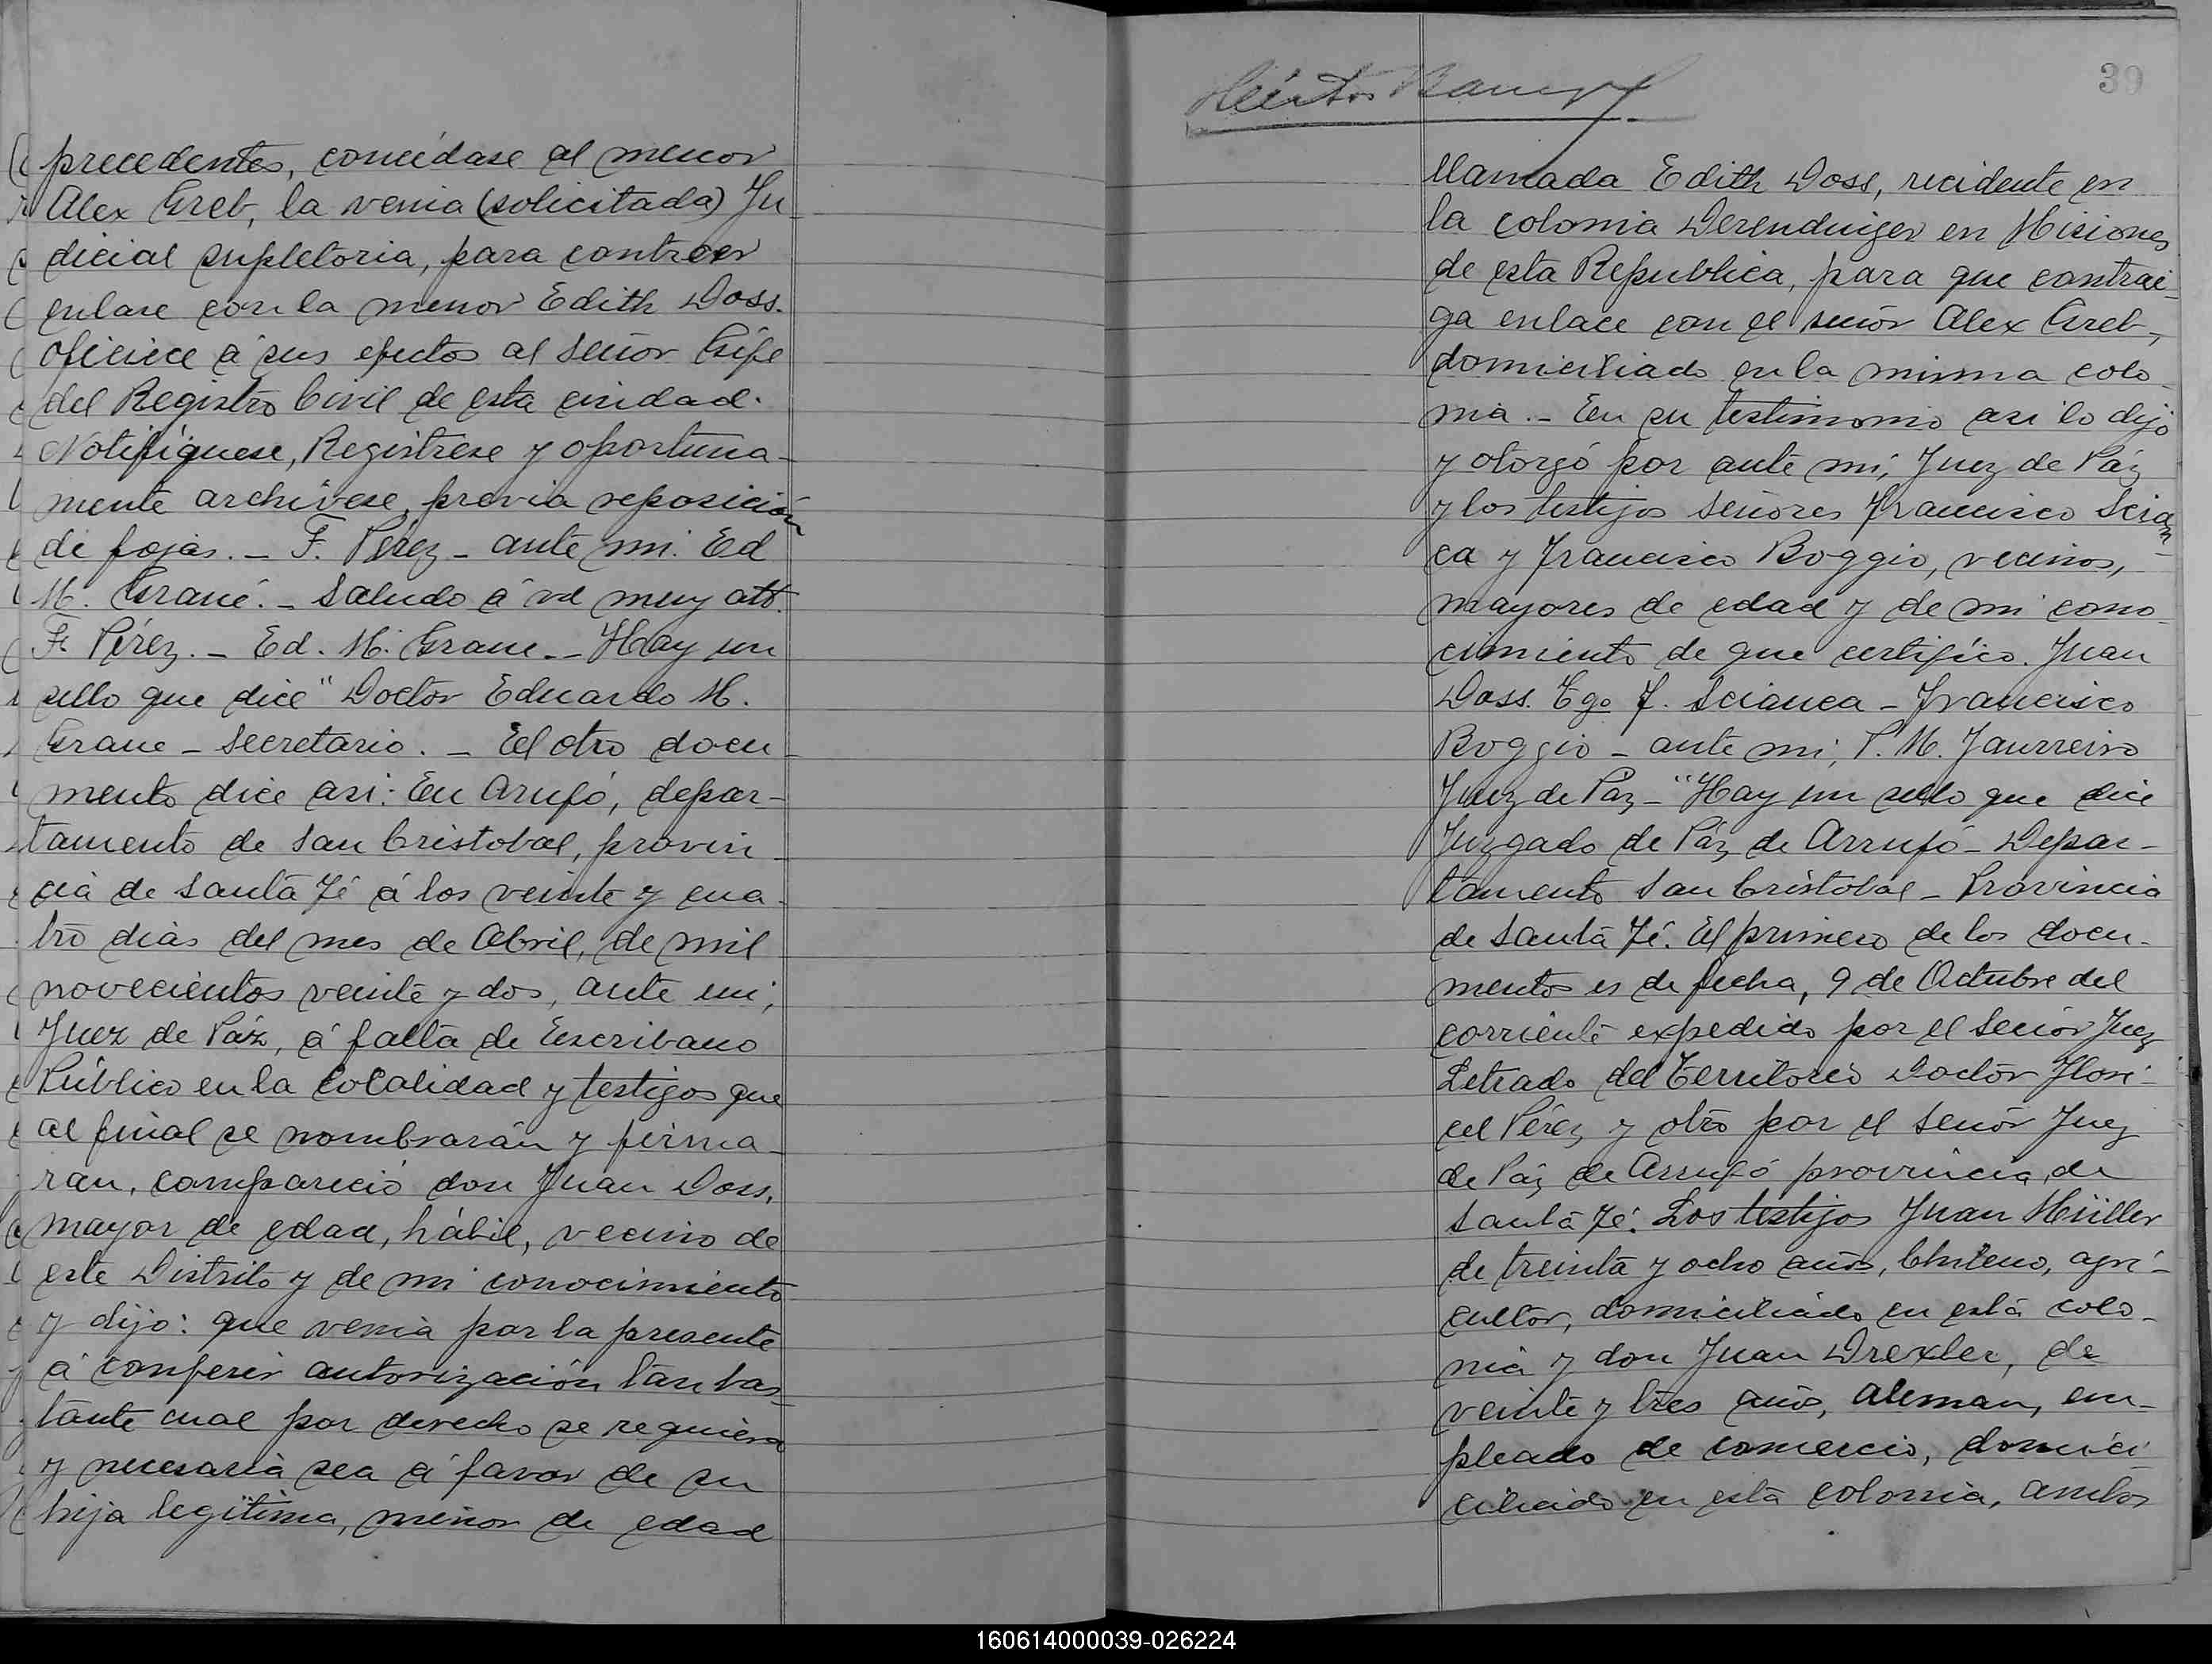 precedentes, concédase al menor
Alex Greb, la venia (solicitada) Ju-
dicial supletoria, para contraer
enlace con la menor Edith Doss.
Oficiece á sus efectos al Señor Gefe
del Registro Civil de esta ciudad.
Notifíquese, Registrese y oportuna-
mente archívese, previa reposición
de fojas. - F. Pérez - ante mi. Ed
M. Grané. - Saludo á vd muy att.
F. Pérez. - Ed. M. Grane. - Hay un
sello que dice "Doctor Eduardo M.
Grane - Secretario. - El otro docu-
mento dice asi: En Arufó, depar-
tamento de San Cristobal, provin-
cia de Santa Fé á los veinte y cua-
tro dias del mes de Abril, de mil
novecientos veinte y dos, ante mi,
Juez de Páz, á falta de Escribano
Público en la localidad y testigos que
al final se nombrarán y firma-
ran, compareció don Juan Doss,
mayor de edad, hábil, vecino de
este Distrito y de mi conocimiento
y dijo: que venia por la presente
á conferir autorización tan bas-
tante cual por derecho se requiera
y necesaria sea á favor de su
hija legitima, menor de edad
39
llamada Edith Doss, recidente en
la colonia Derendinger en Misiones
de esta Republica, para que contrai-
ga enlace con el señor Alex Greb,
domiciliado en la misma colo-
nia. - En su testimonio asi lo dijo
y otorgó por ante mi, Juez de Páz
y los testigos señores Francisco Scian-
ca y Francisco Boggio, vecinos,
mayores de edad y de mi cono-
cimiento de que certifíco. Juan
Doss. Tgo F. Scianca - Francisco
Boggio - ante mi, P. M.
Juez de Páz - "Hay un sello que dice
Juzgado de Páz de Arrufó - Depar-
tamento San Cristobal - Provincia
de Santa Fé. El primero de los docu-
mentos es de fecha, 9 de Octubre del
corriente expedido por el Señor Juez
Letrado del Territorio Doctor Flori-
cel Pérez y otro por el Señor Juez
de Páz de Arrufó provincia de
Santa Fé. Los testigos Juan Müller
de treinta y ocho años, Chileno, agri-
cultor, domiciliado en esta colo-
nia y don Juan Drexler, de
veinte y tres años, Aleman, em-
pleado de comercio, domici-
ciliado en esta colonia, ambos
160614000039-026224